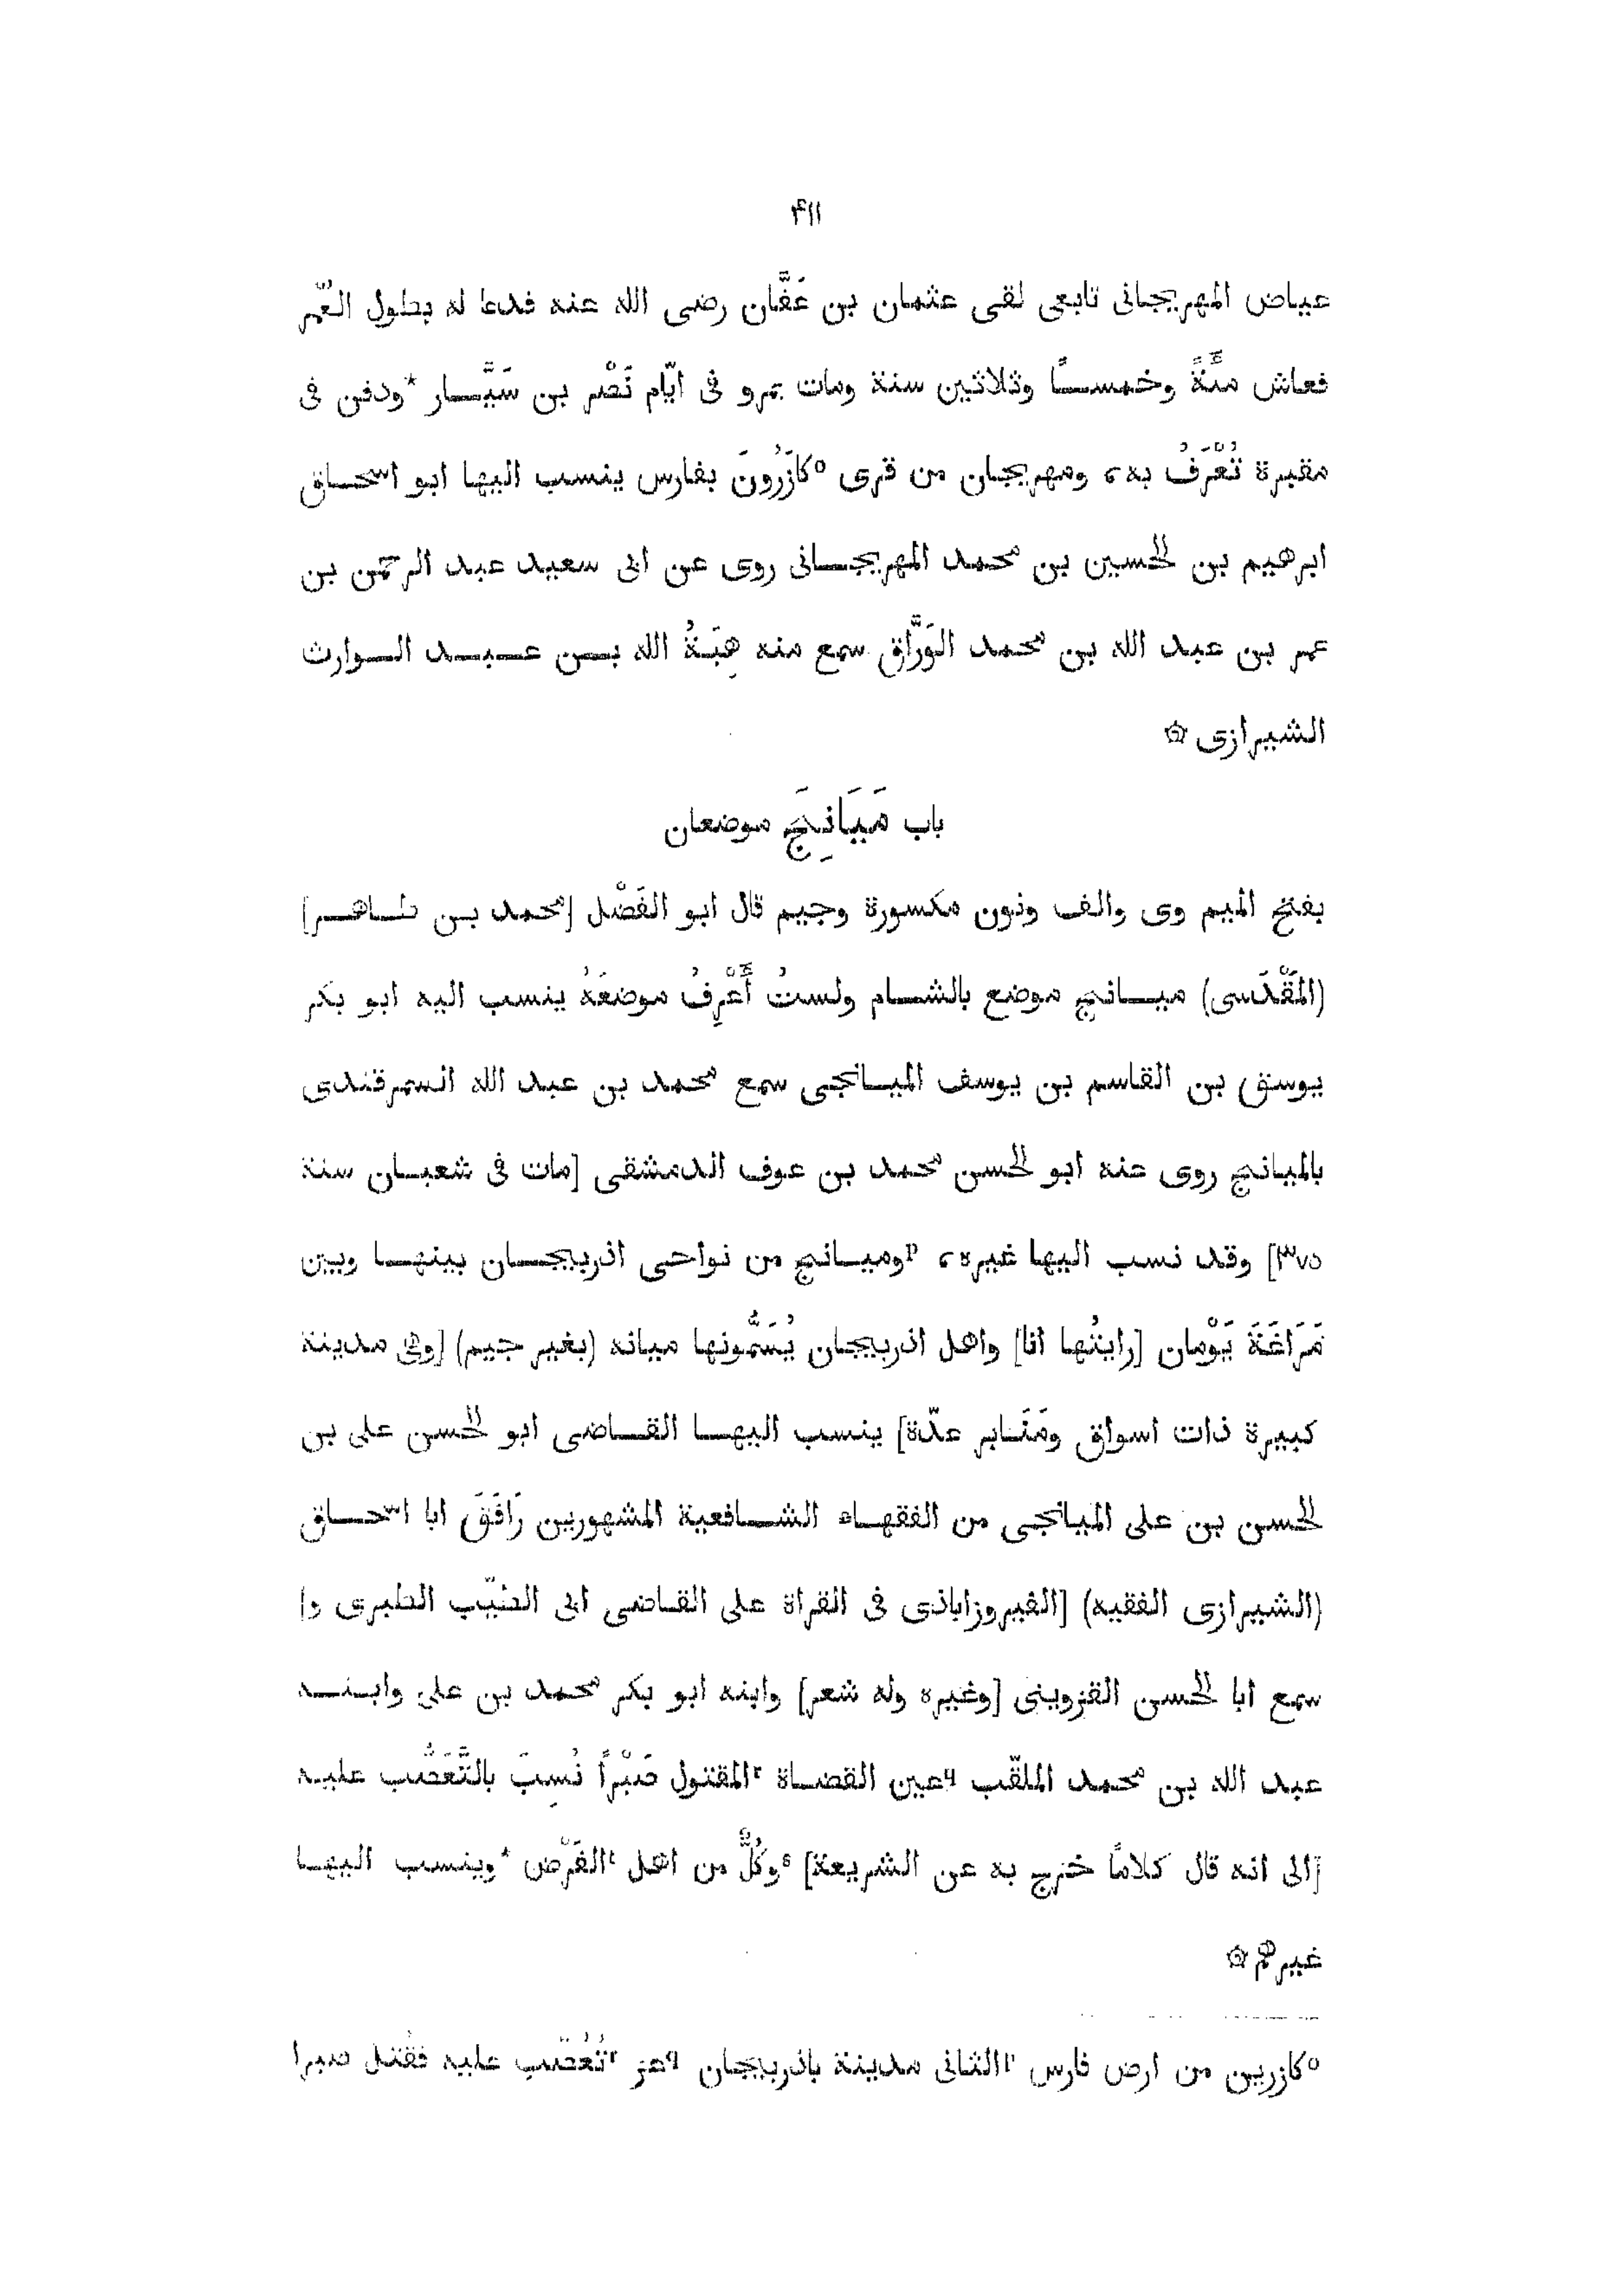 ۴۱۱
عياض المهرجانى تابعى لقى عثمان بن عَفَّان رضى الله عنه فدعا له بطول العُمّر
فعاش مئَّةً وخمسًا وثلاثين سنة ومات بمرو فى ايّام نَصْر بن سَيَّار *ودفن فى
مقبرة تُعْرَفُ به، ومهرجان من قرى ٥كازَرُونَ بفارس ينسب اليها ابو اسحاق
ابرهيم بن الحسين بن محمد المهرجانى روى عن ابى سعيد عبد الرحمن بن
عمر بن عبد الله بن محمد الوَرَّاق سمع منه هِبَةُ الله بن عبد الوارث
الشيرازى ۞
باب مَيَانِجَ موضعان
بفتح الميم وى والف ونون مكسورة وجيم قال ابو الفَضْل [محمد بن طاهر]
(المَقْدَسى) ميانج موضع بالشام ولستُ أَعْرِفُ موضعَهُ ينسب اليه ابو بكر
يوسف بن القاسم بن يوسف الميانجى سمع محمد بن عبد الله السمرقندى
بالميانج روى عنه ابو الحسن محمد بن عوف الدمشقى [مات فى شعبان سنة
٣٧٥] وقد نسب اليها غيره، وميانج من نواحى اذربيجان بينها وبين
مَرَاغَةَ يَوْمان [رايتُها انا] واهل اذربيجان يُسَمُّونها ميانه (بغير جيم) [وهى مدينة
كبيرة ذات اسواق ومَنَابر عدّة] ينسب اليها القاضى ابو الحسن على بن
الحسن بن على الميانجى من الفقهاء الشافعية المشهورين رَافَقَ ابا اسحاق
(الشيرازى الفقيه) [الفيروزاباذى فى القراة على القاضى ابى الطيّب الطبرى و]
سمع ابا الحسن القزوينى [وغيره وله شعر] وابنه ابو بكر محمد بن على وابنه
عبد الله بن محمد الملقّب ٩عين القضاة ٢المقتول صَبْرًا نُسِبَ بالتَّعَصُّب عليه
[الى انه قال كلامًا خرج به عن الشريعة] وكُلٌّ من اهل الفَرْض *وينسب اليها
غيرهم ۞
٥كازرين من ارض فارس الثانى مدينة باذربيجان ٩عز ٢تُعُصّب عليه فقتل صبرا